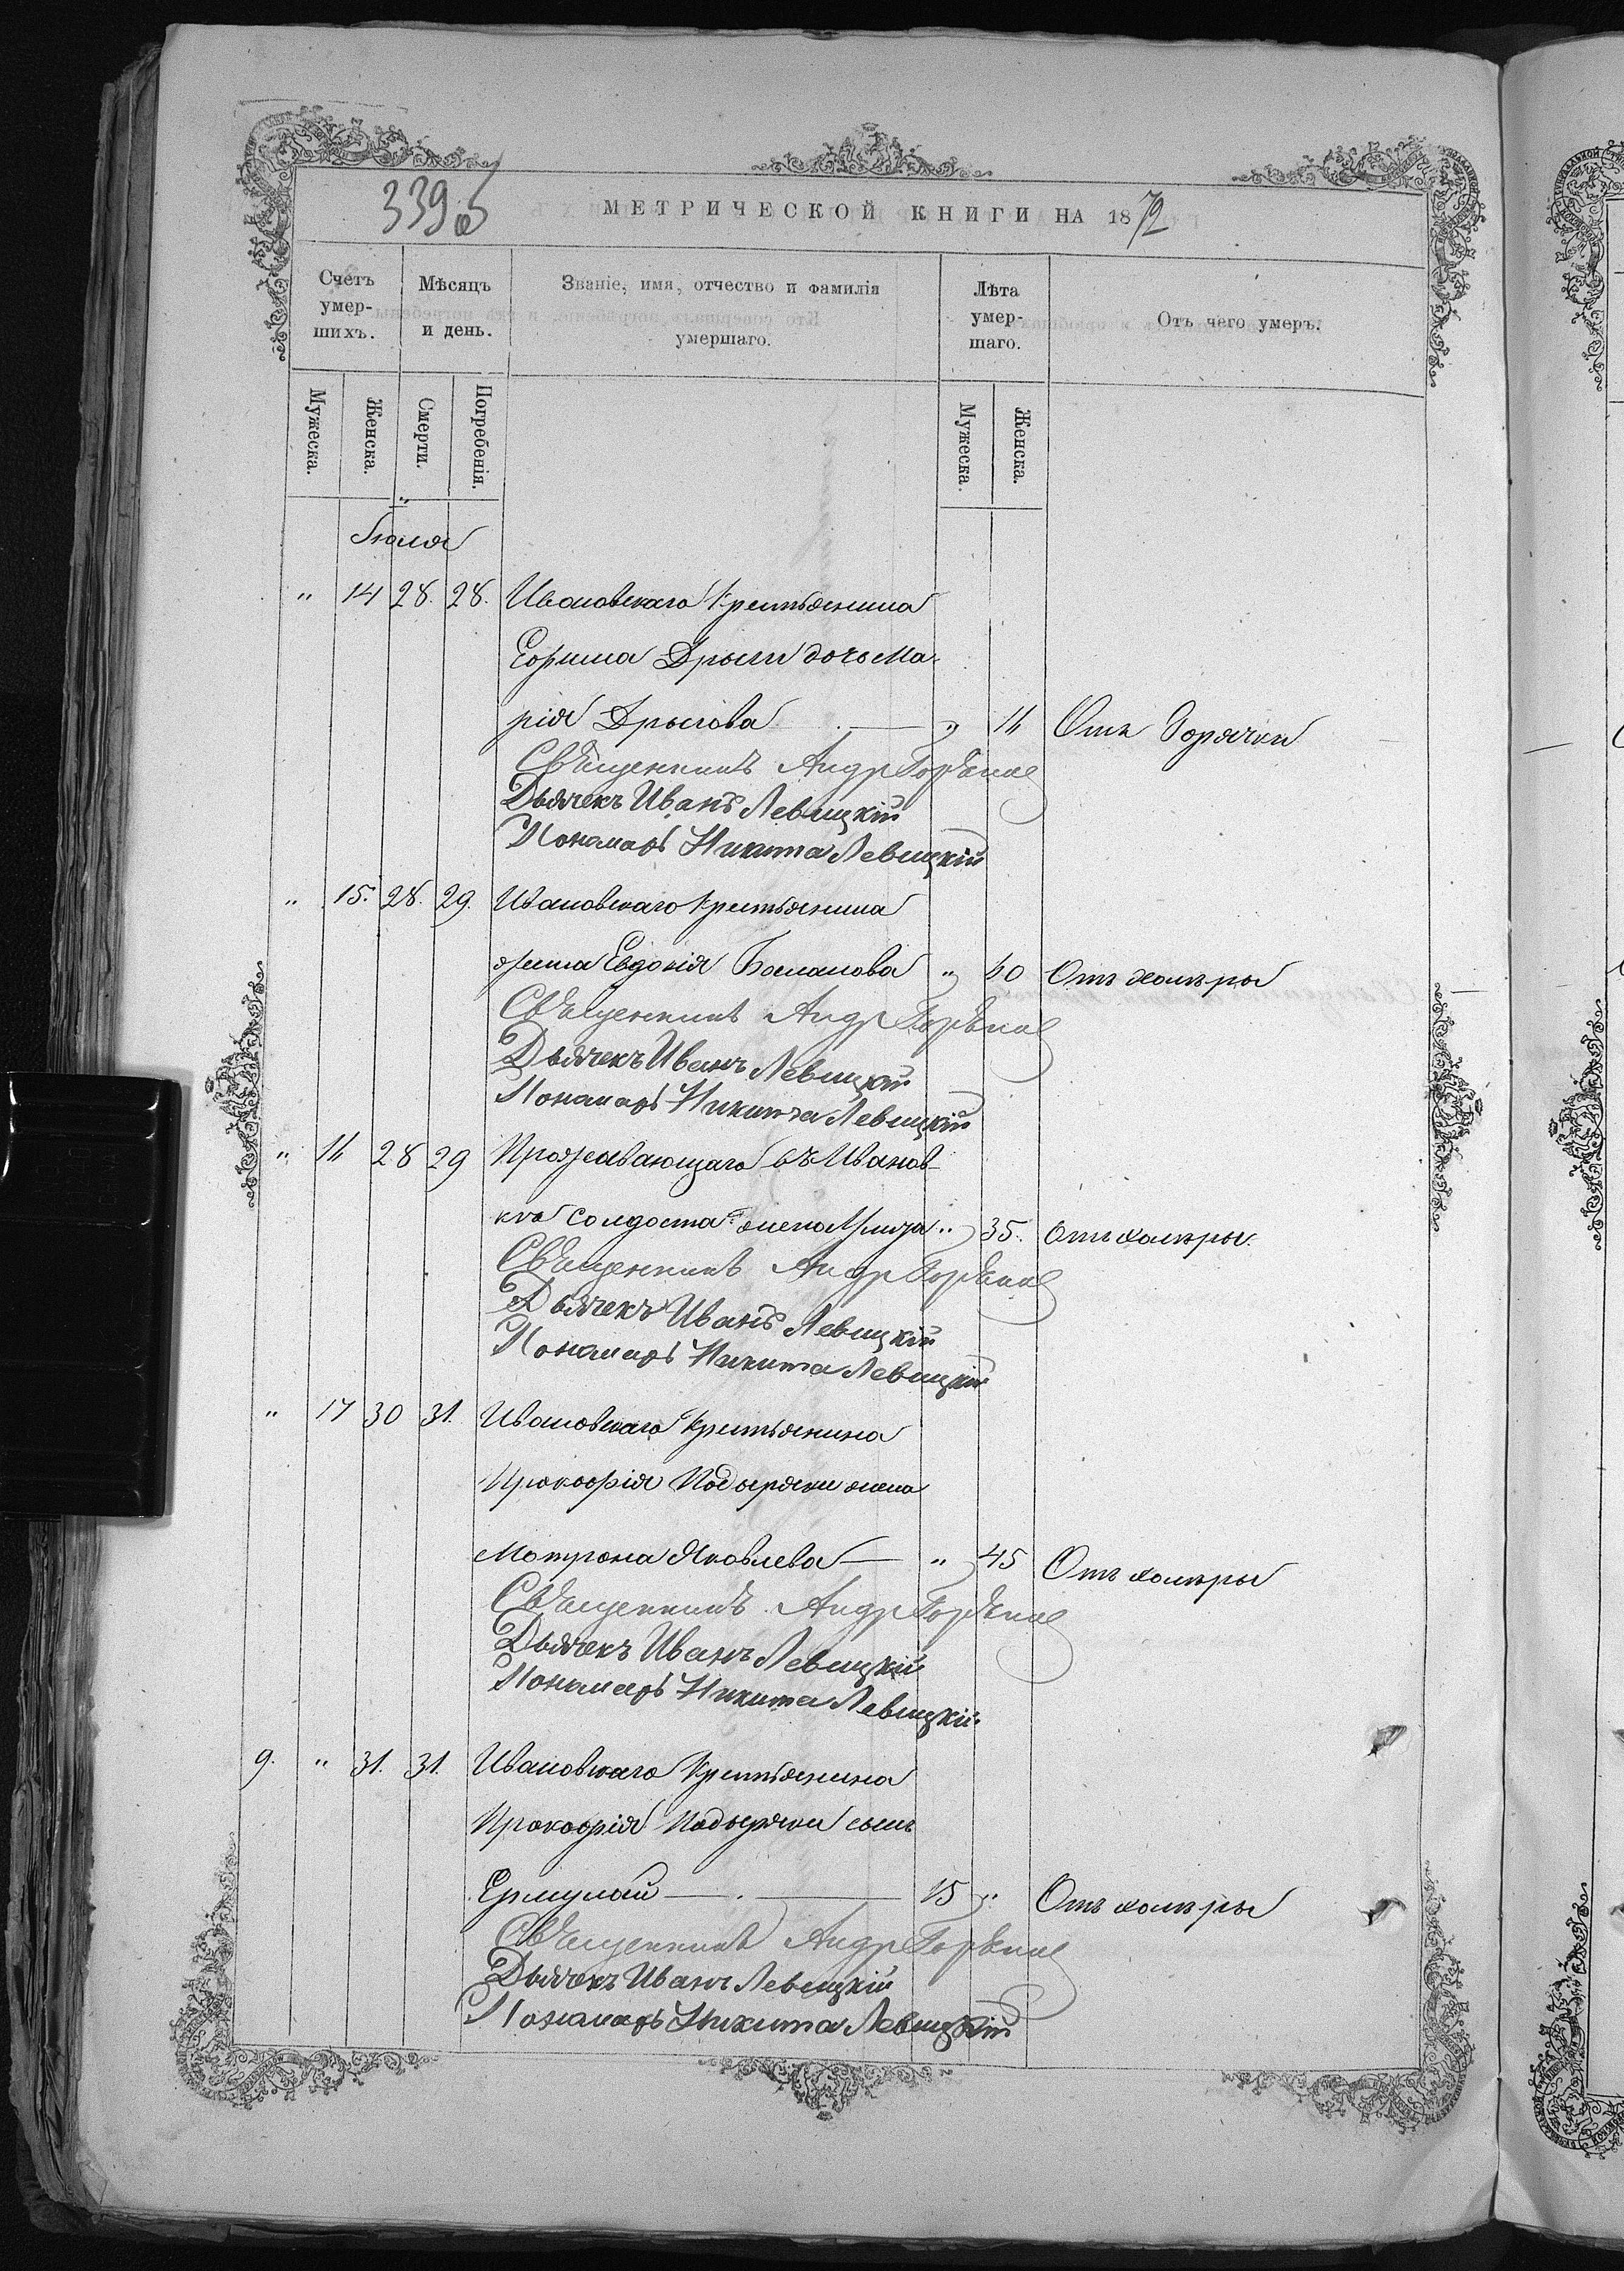 339 об
МЕТРИЧЕСКОЙ КНИГИ НА 1872
Счетъ умер- шихъ.
Мѣсяцъ и день.
Званіе, имя, отчество и фамилія умершаго.
Лѣта умер- шаго.
Отъ чего умеръ.
Мужеска. Женска. Смерти. Погребенія. Мужеска. Женска.
Іюля
" 14 28. 28. Ивановскаго крестьянина
Дрыги дочь Ма-
рія Дрыгова — " Отъ Горячки
Священникъ Андр
Дьячекъ Иванъ Левицкій
Пономарь Никита Левицкій
" 15. 28. 29. Ивановскаго крестьянина
жена Евдокія " 40 Отъ холеры
Священникъ Андр
Дьячекъ Иванъ Левицкій
Пономарь Никита Левицкій
" 16 28 29 Проживающаго въ Иванов-
кѣ солдата жена " 35. Отъ холеры.
Священникъ Андр
Дьячекъ Иванъ Левицкій
Пономарь Никита Левицкій
" 17 30 31. Ивановскаго крестьянина
Прокофія жена
Матрона Яковлева — " 45 Отъ холеры
Священникъ Андр
Дьячекъ Иванъ Левицкій
Пономарь Никита Левицкій
9. " 31. 31. Ивановскаго крестьянина
Прокофія сынъ
Ермулай — 15 " Отъ холеры
Священникъ Андр
Дьячекъ Иванъ Левицкій
Пономарь Никита Левицкій